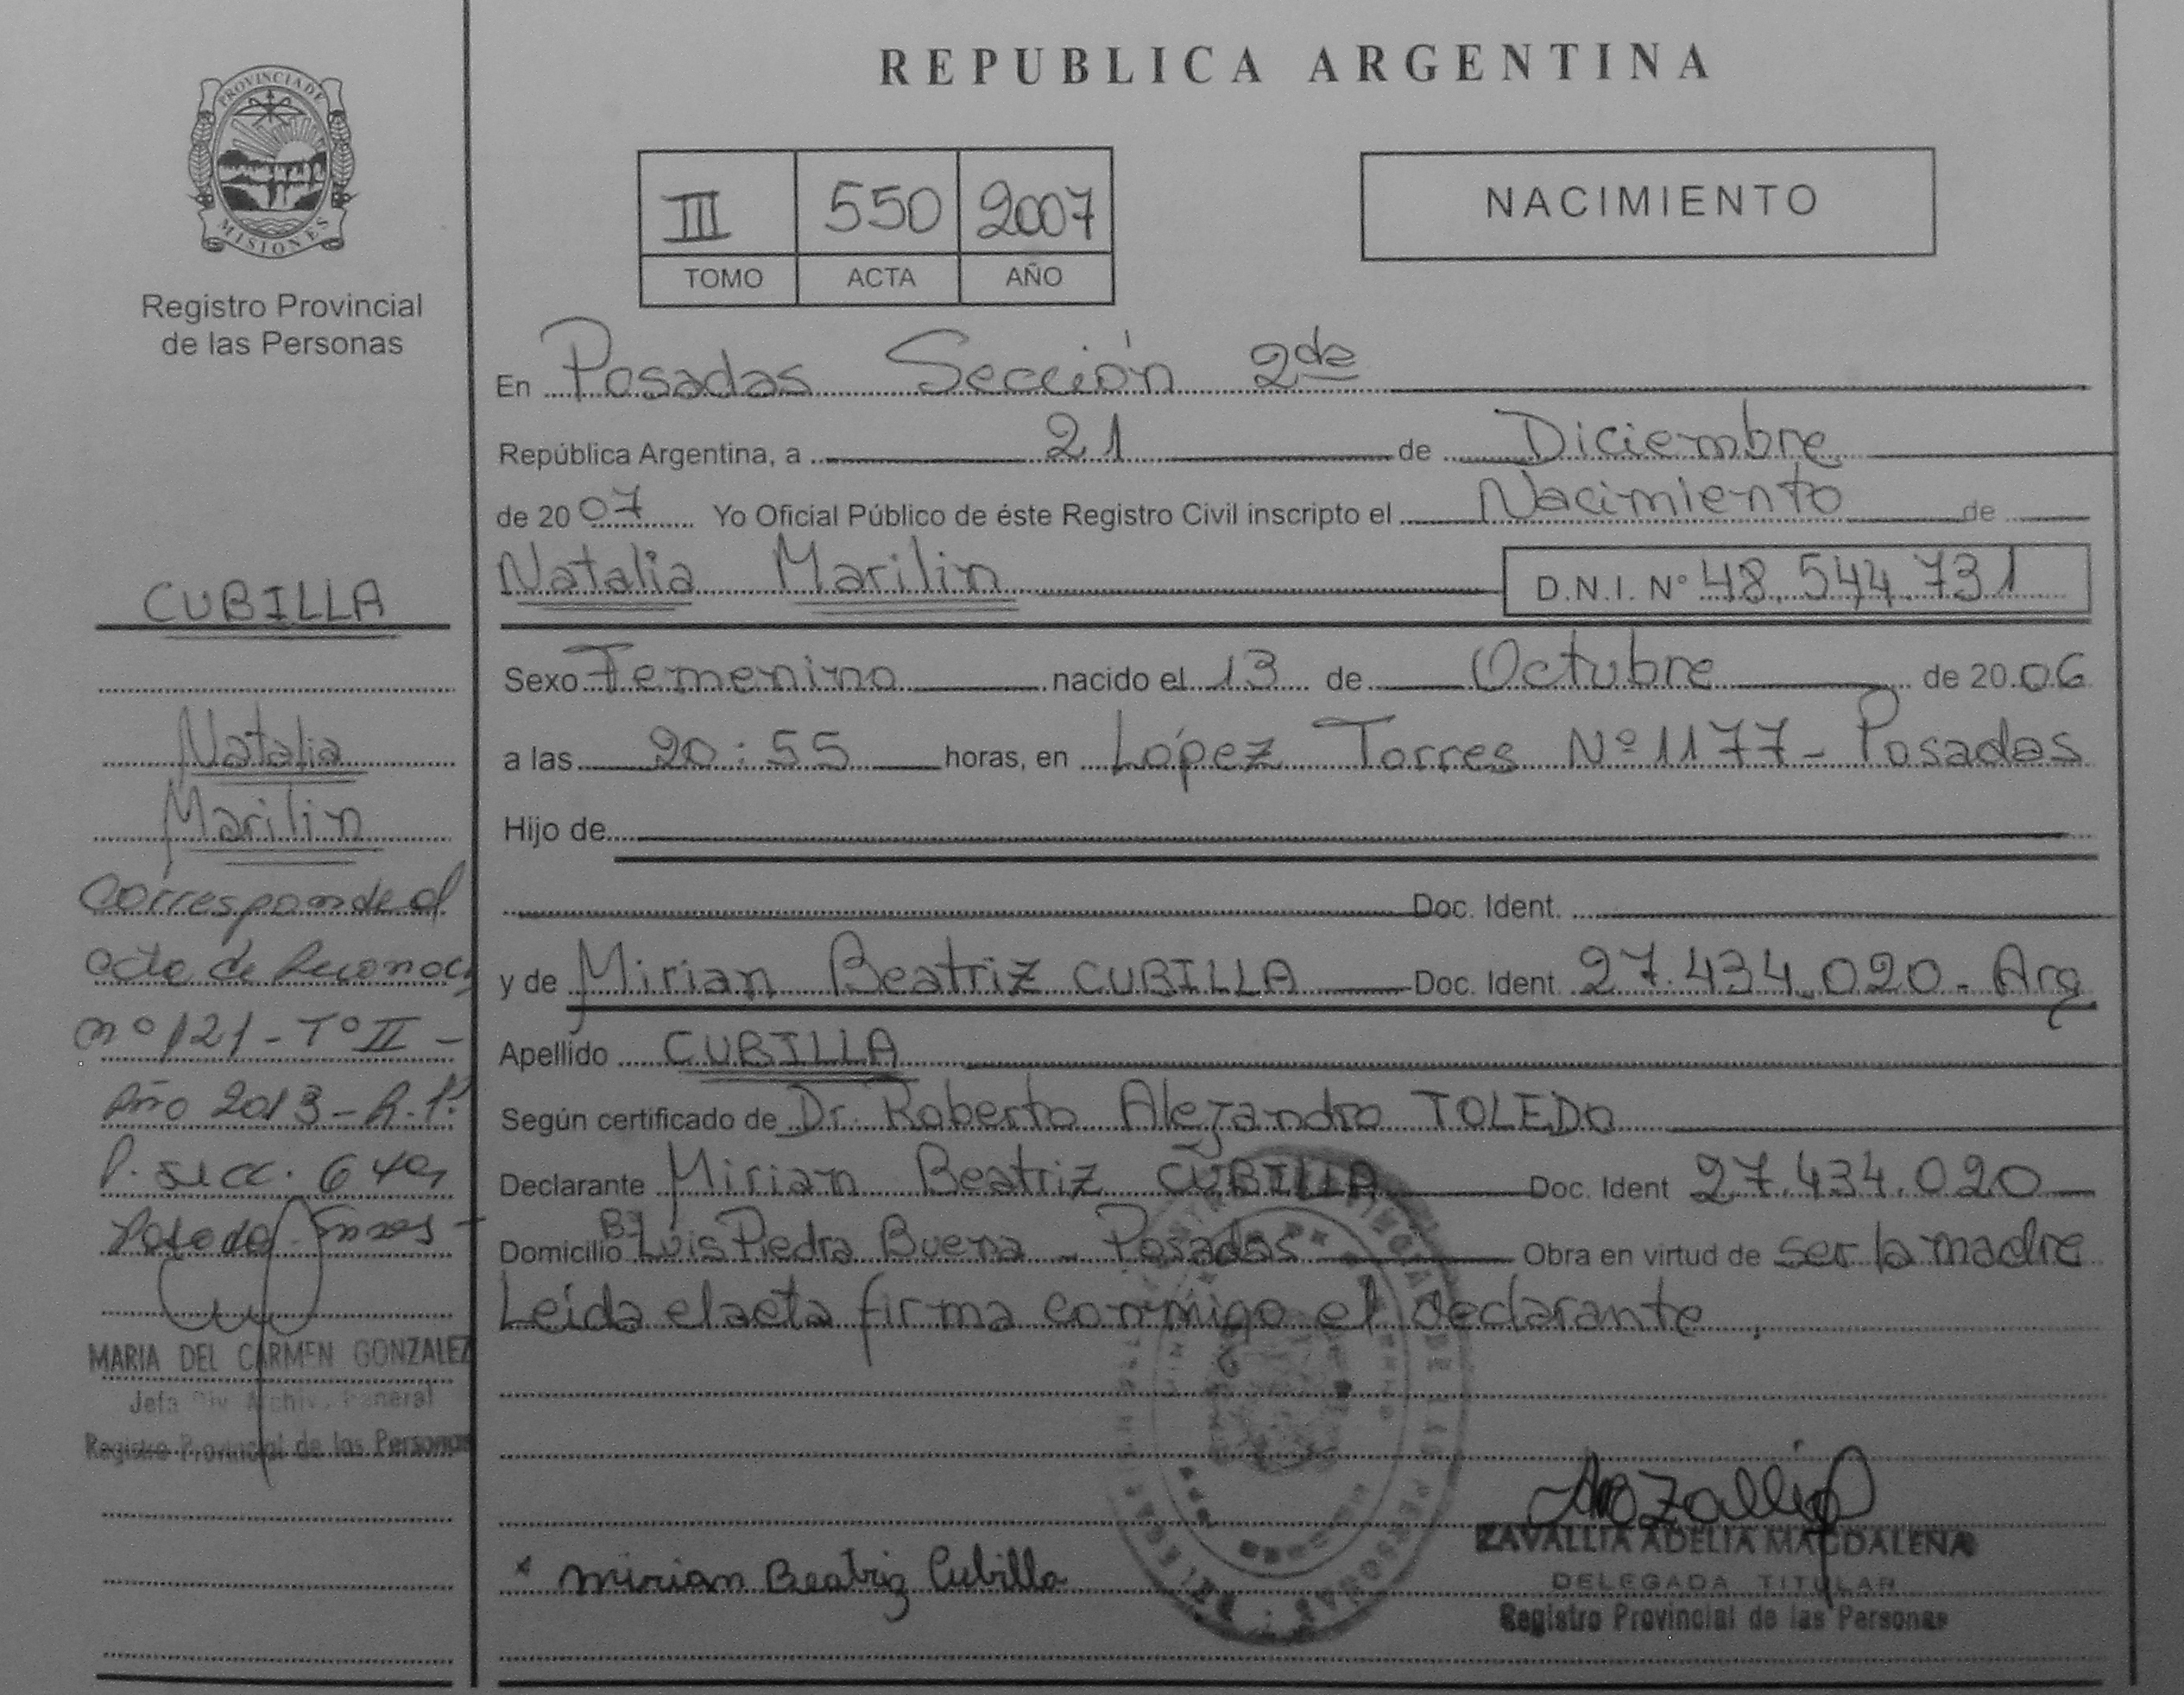 PROVINCIA DE
MISIONES
Registro Provincial
de las Personas
CUBILLA
Natalia
Marilin
Corresponde al
acta de Reconoc
nº 121 - Tº II -
Año 2013 - R.P.
P. secc. 6 ta
Posadas
MARIA DEL CARMEN GONZALEZ
Jefa Div Archiv. General
Registro Provincial de las Personas
REPUBLICA ARGENTINA
III 550 2007
TOMO ACTA AÑO
NACIMIENTO
En Posadas Sección 2da
República Argentina, a 21 de Diciembre
de 2007 Yo Oficial Público de éste Registro Civil inscripto el Nacimiento de
Natalia Marilin D.N.I. Nº 48.544.731
Sexo Femenino nacido el 13 de Octubre de 2006
a las 20:55 horas, en López Torres Nº 1177 - Posadas
Hijo de
Doc. Ident.
y de Mirian Beatriz CUBILLA Doc. Ident 27.434.020 - Arg
Apellido CUBILLA
Según certificado de Dr. Roberto Alejandro TOLEDO
Declarante Mirian Beatriz CUBILLA Doc. Ident 27.434.020
Domicilio Bº Luis Piedra Buena - Posadas Obra en virtud de ser la madre
Leída el acta firma conmigo el declarante.
ZAVALLIA ADELIA MAGDALENA
DELEGADA TITULAR
Registro Provincial de las Personas
x Mirian Beatriz Cubilla